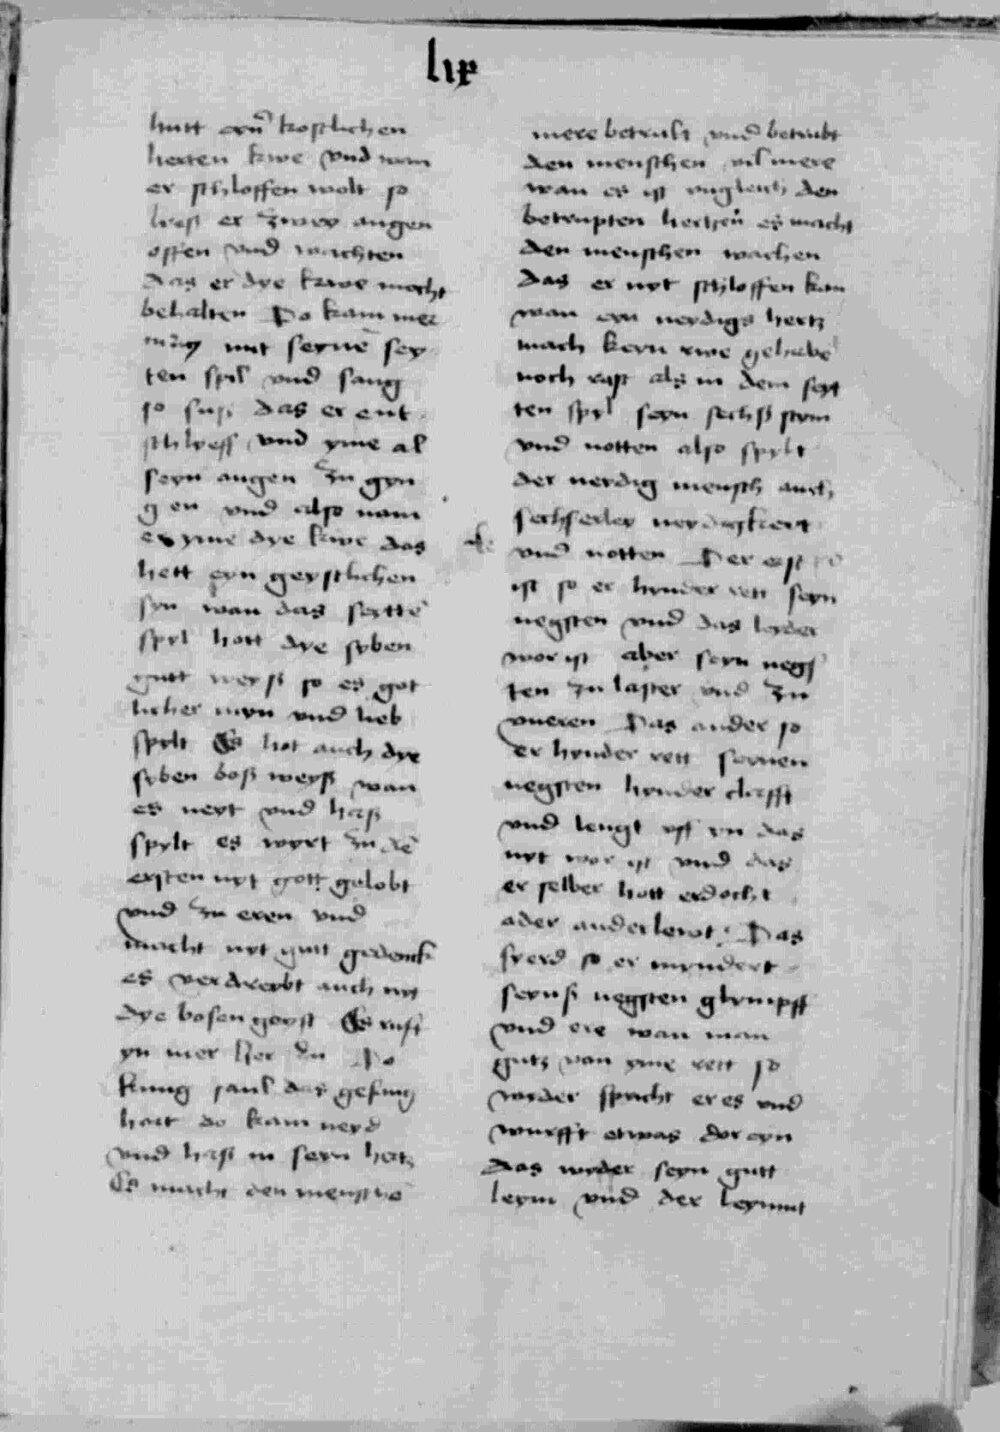 lix
hutt eyn̄ kostlichen
herten kwe vnd wan
er schloffen wolt so
ließ er zwey augen
offen vnd wachten
das er dye kwe mocht
behalten Do kam mer
mit seyne sey
ten spil vnd sang
so suß das er ent
schlyeff vnd yme al
seyn augen zu gyn
gen vnd also nam
er yme dye kwe das
hett eyn geystlichen
syn wan das seytte
spyl hott dye syben
gutt weyß so es got
licher myn vnd lieb
spylt Es hot auch dye
syben boß weyß wan
es neyt vnd haß
spylt es wyrt zu dē
ersten nyt gott gelobt
vnd zu eren vnd
macht nyt gutt gedenck
es verdreybt auch nyt
dye bosen geyst Es rufft
yn mer her zu Do
kunig saul das gesung
hort do kam neyd
vnd haß in seyn hertz
Es macht den menschē
mere betrubt vnd betrubt
den menschen vil mere
wan es ist vngleich den
betrupten hertzen̄ es macht
den menschen wachen
das er nyt schloffen kan
wan eyn neydigs hertz
mach keyn rwe gehabē
noch rast als in dem seyt
ten spyl seyn sechß stym
vnd notten also spylt
der neydig mensch auch
sechserley neydigkeyt
vnd notten Der erst
ist so er hynder rett seyn
negsten vnd das leyder
wor ist aber seyn negs
ten zu laster vnd zu
vneren Das ander so
er hynder rett seynen
negsten hynder clafft
vnd leugt vff yn das
nyt wor ist vnd das
er selber hott erdocht
ader ander lewt Das
so er myndert
seynß negsten glympff
vnd ere wan man
gutz von yme rett so
wyder spricht er es vnd
wurfft etwas dor eyn
das wyder seyn gutt
leym vnd der leymut